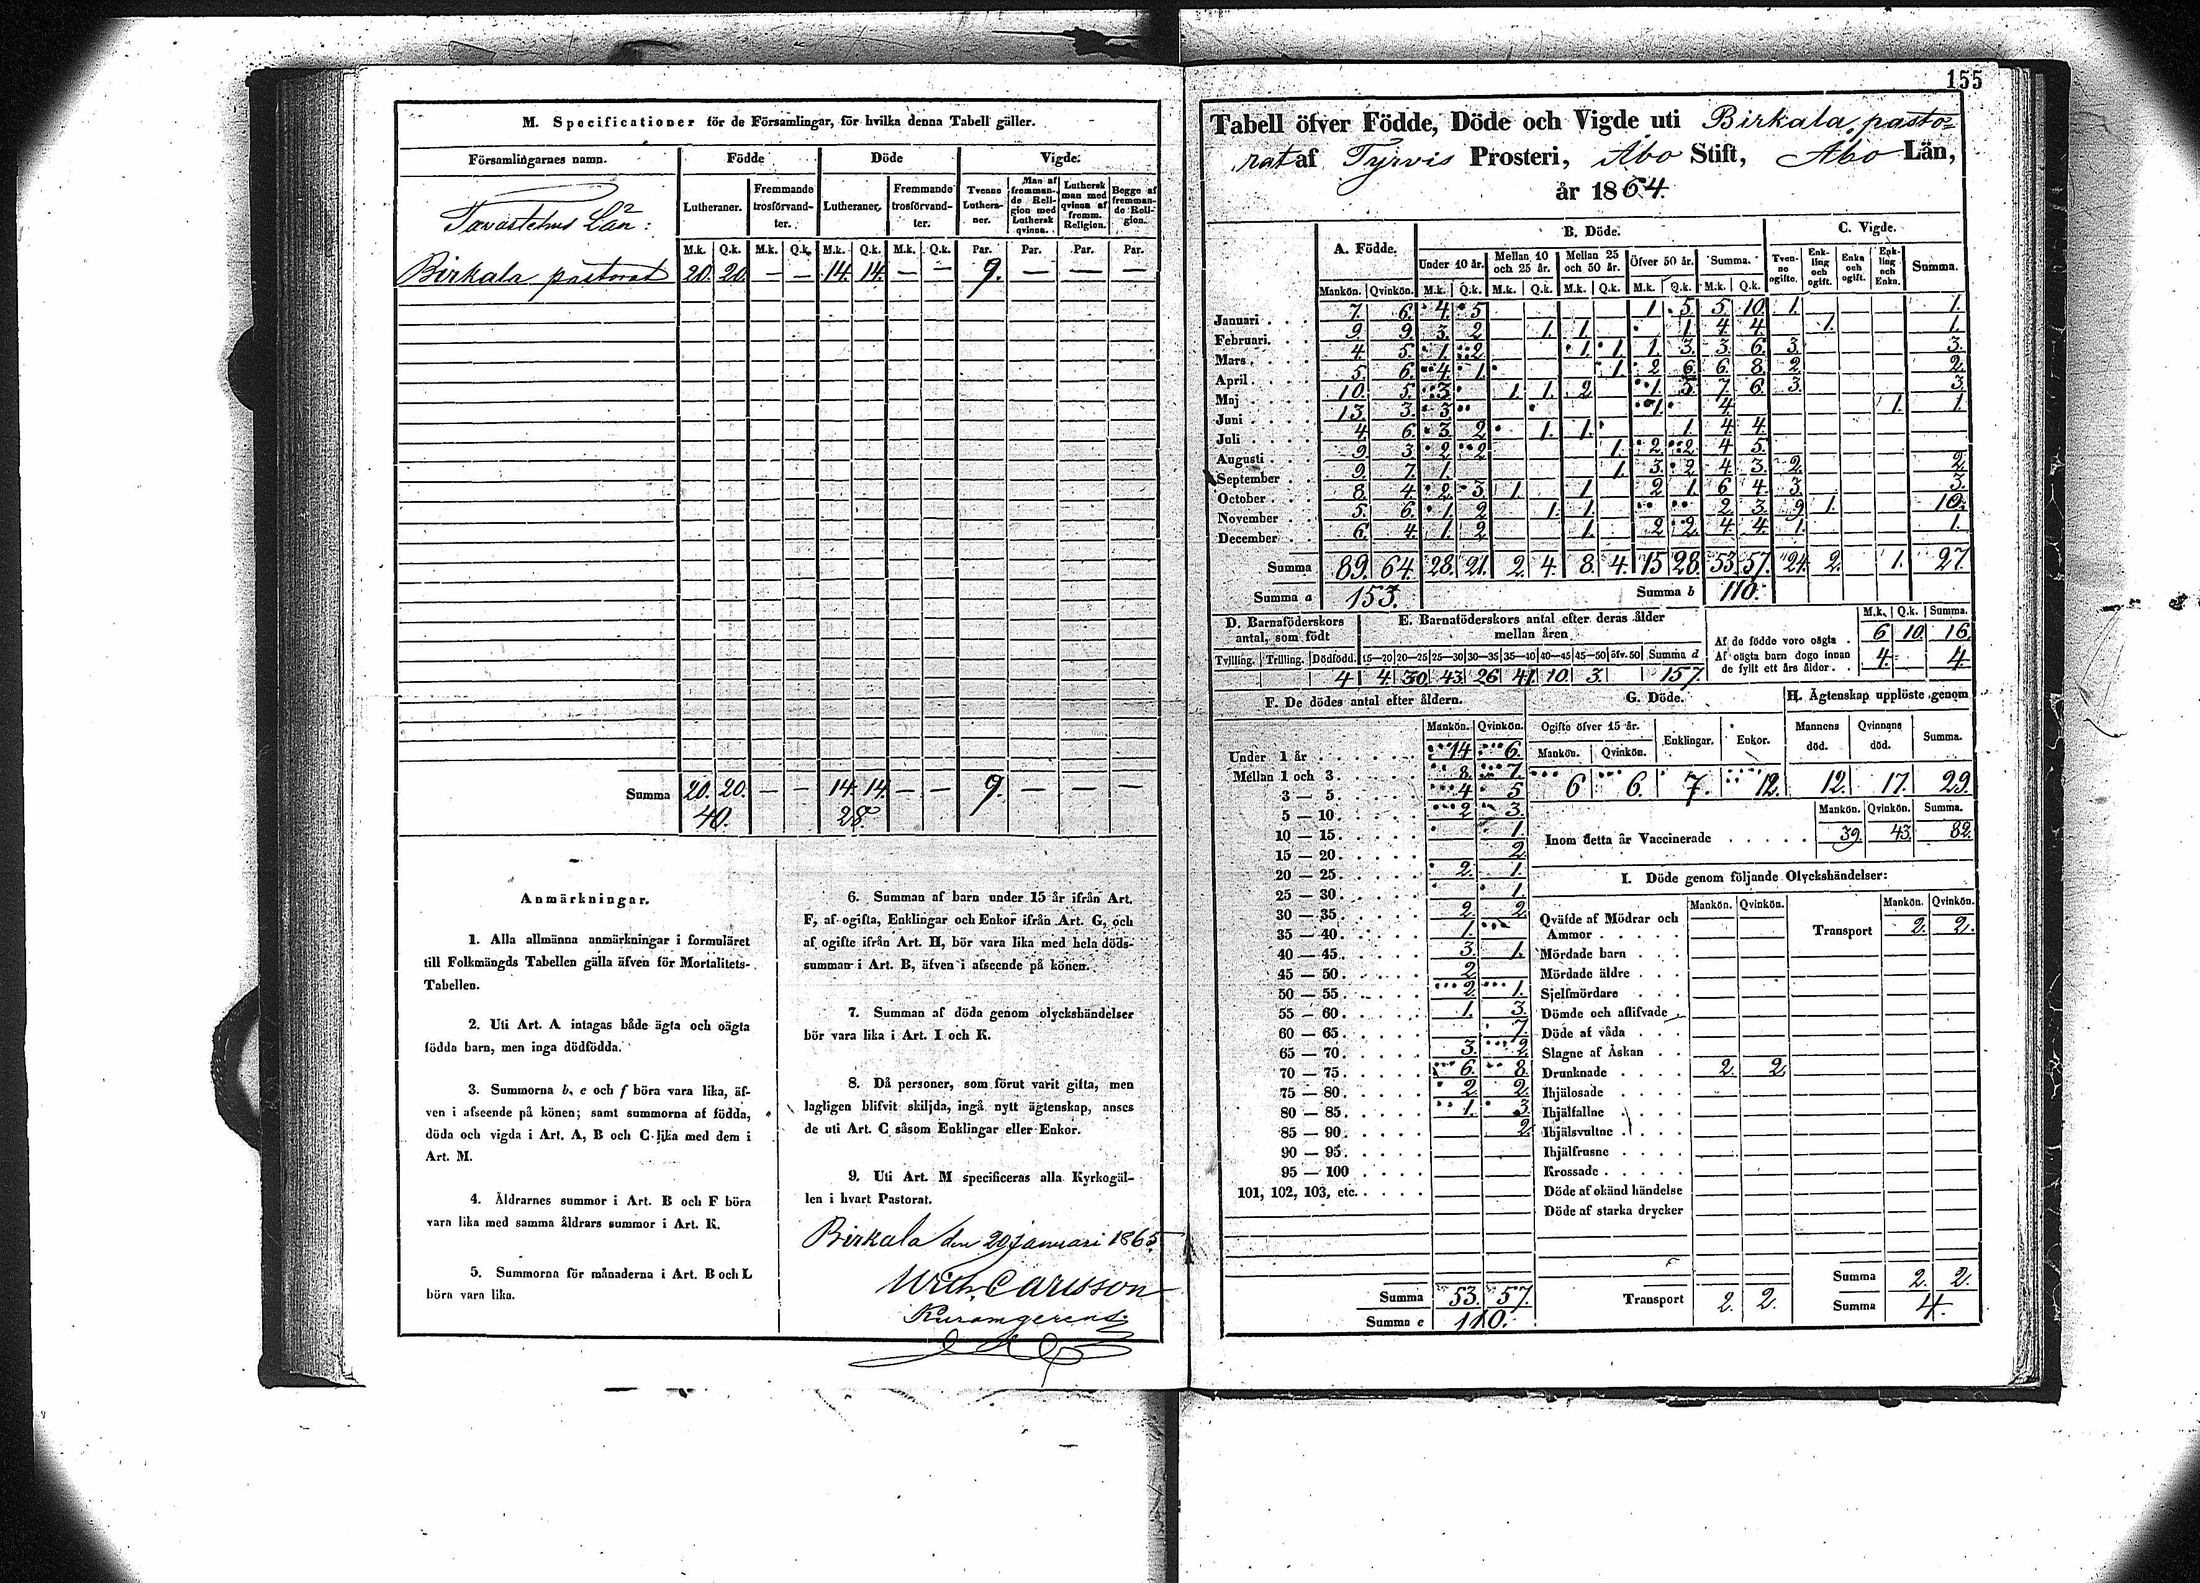 M. Specificationer för de Församlingar, för hvilka denna Tabell gäller.
Församlingarnes namn. Födde Döde Vigde.
Lutheraner. Fremmande trosförvandter. Lutheraner. Fremmande trosförvandter. Tvenne Lutheraner. Man af fremmande Religion med Luthersk qvinna. Luthersk man med qvinna af fremm. Religion. Begge af fremmande Religion.
M.k. Q.k. M.k. Q.k. M.k. Q.k. M.k. Q.k. Par. Par. Par. Par.
Tavastehus Län:
Birkala pastorat 20. 20. — — 14. 14. — — 9. — — —
Summa 20. 20. — — 14. 14. — — 9. — — —
40. 28.
Anmärkningar.
1. Alla allmänna anmärkningar i formuläret
till Folkmängds Tabellen gälla äfven för Mortalitets-
Tabellen.
2. Uti Art. A intagas både ägta och oägta
födda barn, men inga dödfödda.
3. Summorna b, e och f böra vara lika, äf-
ven i afseende på könen; samt summorna af födda,
döda och vigda i Art. A, B och C lika med dem i
Art. M.
4. Åldrarnes summor i Art. B och F böra
vara lika med samma åldrars summor i Art. K.
5. Summorna för månaderna i Art. B och L
böra vara lika.
6. Summan af barn under 15 år ifrån Art.
F, af ogifta, Enklingar och Enkor ifrån Art. G, och
af ogifte ifrån Art. H, bör vara lika med hela döds-
summan i Art. B, äfven i afseende på könen.
7. Summan af döda genom olyckshändelser
bör vara lika i Art. I och K.
8. Då personer, som förut varit gifta, men
lagligen blifvit skiljda, ingå nytt ägtenskap, anses
de uti Art. C såsom Enklingar eller Enkor.
9. Uti Art. M specificeras alla Kyrkogäl-
len i hvart Pastorat.
Birkala den 20 januari 1865.
Carlsson
155
Tabell öfver Födde, Döde och Vigde uti Birkala pasto-
rat af Tyrvis Prosteri, Åbo Stift, Åbo Län,
år 1864.
A. Födde. B. Döde. C. Vigde.
Under 10 år. Mellan 10 och 25 år. Mellan 25 och 50 år. Öfver 50 år. Summa. Tvenne ogifte. Enkling och ogift. Enka och ogift. Enkling och Enka. Summa.
Mankön. Qvinkön. M.k. Q.k. M.k. Q.k. M.k. Q.k. M.k. Q.k. M.k. Q.k.
Januari 7. 6. 4. 5 1. 5 5. 10. 1. 1.
Februari. 9. 9. 3. 2 1. 1. 1. 4. 4. 1. 1.
Mars 4. 5. 1. 2. 1. 1. 1. 3. 3. 6. 3. 3.
April 5. 6. 4. 1. 1. 2 6 6. 8. 2. 2.
Maj 10. 5. 3. 1. 1. 2. 1. 3. 7. 6. 3. 3.
Juni 13. 3. 3. 1. 4. 1. 1.
Juli 4. 6. 3. 2. 1. 1. 1. 4. 4.
Augusti 9. 3. 2. 2. 1. 2. 2. 4. 5.
September 9. 7. 1. 1. 3. 2. 4. 3. 2. 2.
October 8. 4. 2. 3. 1. 1. 2. 1. 6. 4. 3. 3.
November 5. 6. 1. 2. 1. 1. 2. 3. 9. 1. 10.
December 6. 4. 1. 2. 1. 2. 2. 4. 4. 1. 1.
Summa 89. 64. 28. 21. 2. 4. 8. 4. 15. 28. 53. 57. 24. 2. 1. 27.
Summa a 153. Summa b 110.
D. Barnaföderskors antal, som födt E. Barnaföderskors antal efter deras ålder mellan åren
Tvilling. Trilling. Dödfödd. 15—20 20—25 25—30 30—35 35—40 40—45 45—50 öfv. 50 Summa d
4 4. 30. 43. 26 41. 10. 3. 157.
M.k. Q.k. Summa.
Af de födde voro oägta 6 10. 16.
Af oägta barn dogo innan de fyllt ett års ålder 4. 4.
F. De dödes antal efter åldern.
Mankön. Qvinkön.
Under 1 år 14 6.
Mellan 1 och 3 8. 7.
3 — 5 4 5
5 — 10 2 3.
10 — 15 1.
15 — 20 2
20 — 25 2. 1.
25 — 30 1.
30 — 35 2. 2.
35 — 40 1.
40 — 45 3. 1.
45 — 50 2.
50 — 55 2. 1.
55 — 60 1. 3.
60 — 65 7.
65 — 70 3. 2
70 — 75 6. 8.
75 — 80 2. 2.
80 — 85 1. 3.
85 — 90 2.
90 — 95
95 — 100
101, 102, 103, etc.
Summa 53. 57.
Summa e 110.
G. Döde.
Ogifte öfver 15 år. Enklingar. Enkor.
Mankön. Qvinkön.
6 6. 7. 12.
H. Ägtenskap upplöste genom
Mannens död. Qvinnans död. Summa.
12. 17. 29.
Mankön. Qvinkön. Summa.
Inom detta år Vaccinerade 39. 43. 82.
I. Döde genom följande Olyckshändelser:
Mankön. Qvinkön. Mankön. Qvinkön.
Qväfde af Mödrar och
Ammor
Transport 2. 2.
Mördade barn
Mördade äldre
Sjelfmördare
Dömde och aflifvade
Döde af våda
Slagne af Åskan
Drunknade 2. 2.
Ihjälosade
Ihjälfallne
Ihjälsvultne
Ihjälfrusne
Krossade
Döde af okänd händelse
Döde af starka drycker
Summa 2. 2.
Transport 2. 2. Summa 4.